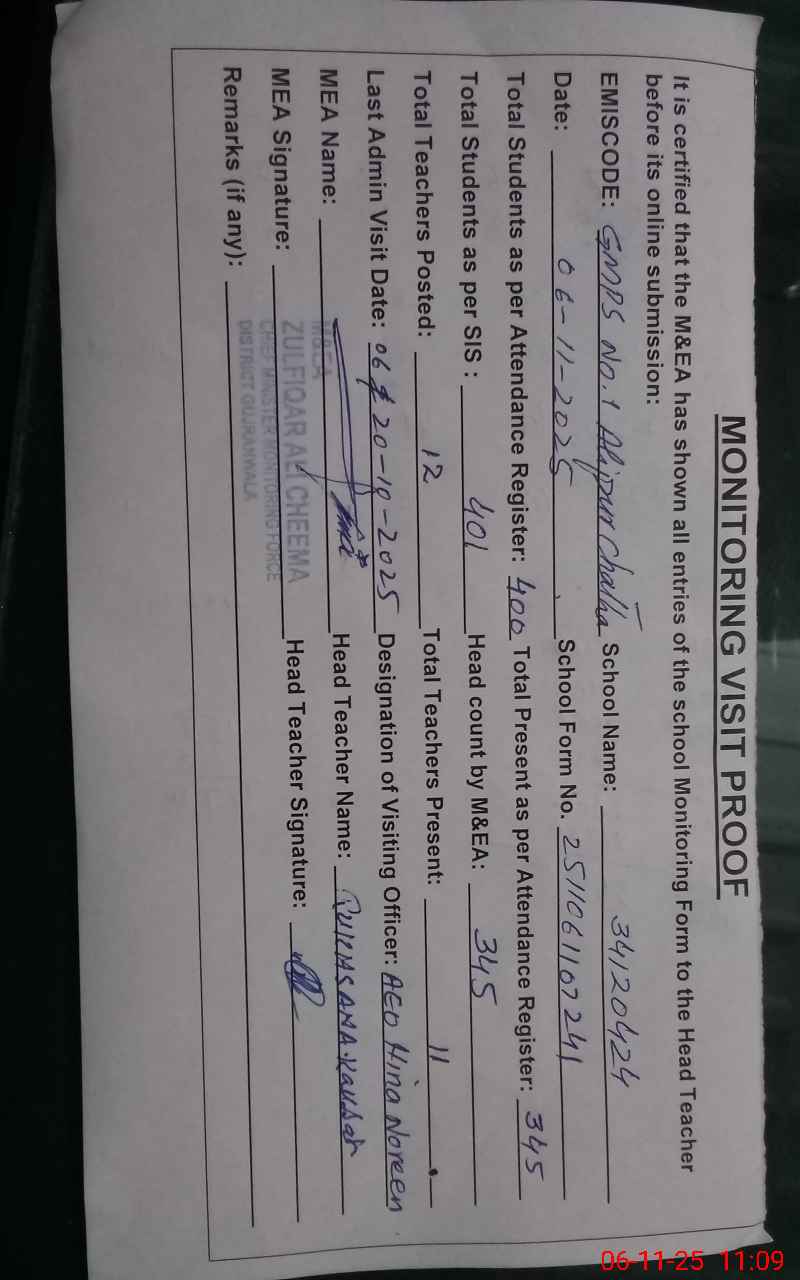 MONITORING VISIT PROOF
It is certified that the M&EA has shown all entries of the school Monitoring Form to the Head Teacher
before its online submission:
EMISCODE: GMPS No.1 Alipur Chatha School Name: 34120424
Date: 06-11-2025 School Form No. 2511061107241
Total Students as per Attendance Register: 400 Total Present as per Attendance Register: 345
Total Students as per SIS : 401 Head count by M&EA: 345
Total Teachers Posted: 12 Total Teachers Present: 11
Last Admin Visit Date: 06 20-10-2025 Designation of Visiting Officer: AEO Hina Noreen
MEA Name: Head Teacher Name: RUKHSANA Kausar
MEA Signature: Head Teacher Signature:
Remarks (if any):
M&EA
ZULFIQAR ALI CHEEMA
CHIEF MINISTER MONITORING FORCE
DISTRICT GUJRANWALA
06-11-25 11:09